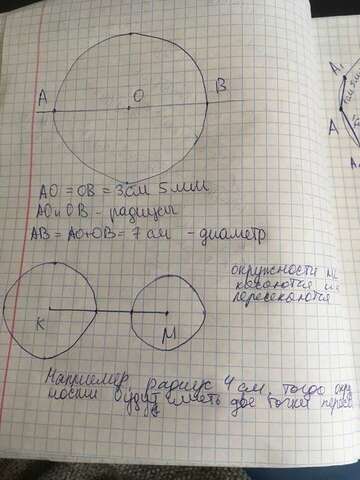 A
O
B
A₁
A
AO = OB = 3 см 5 мм
AO и OB - радиусы
AB = AO+OB = 7 см - диаметр
окружности не
касаются и не
пересекаются
K
M
Например, радиус 4 см, тогда окру
жности будут иметь две точки пересе